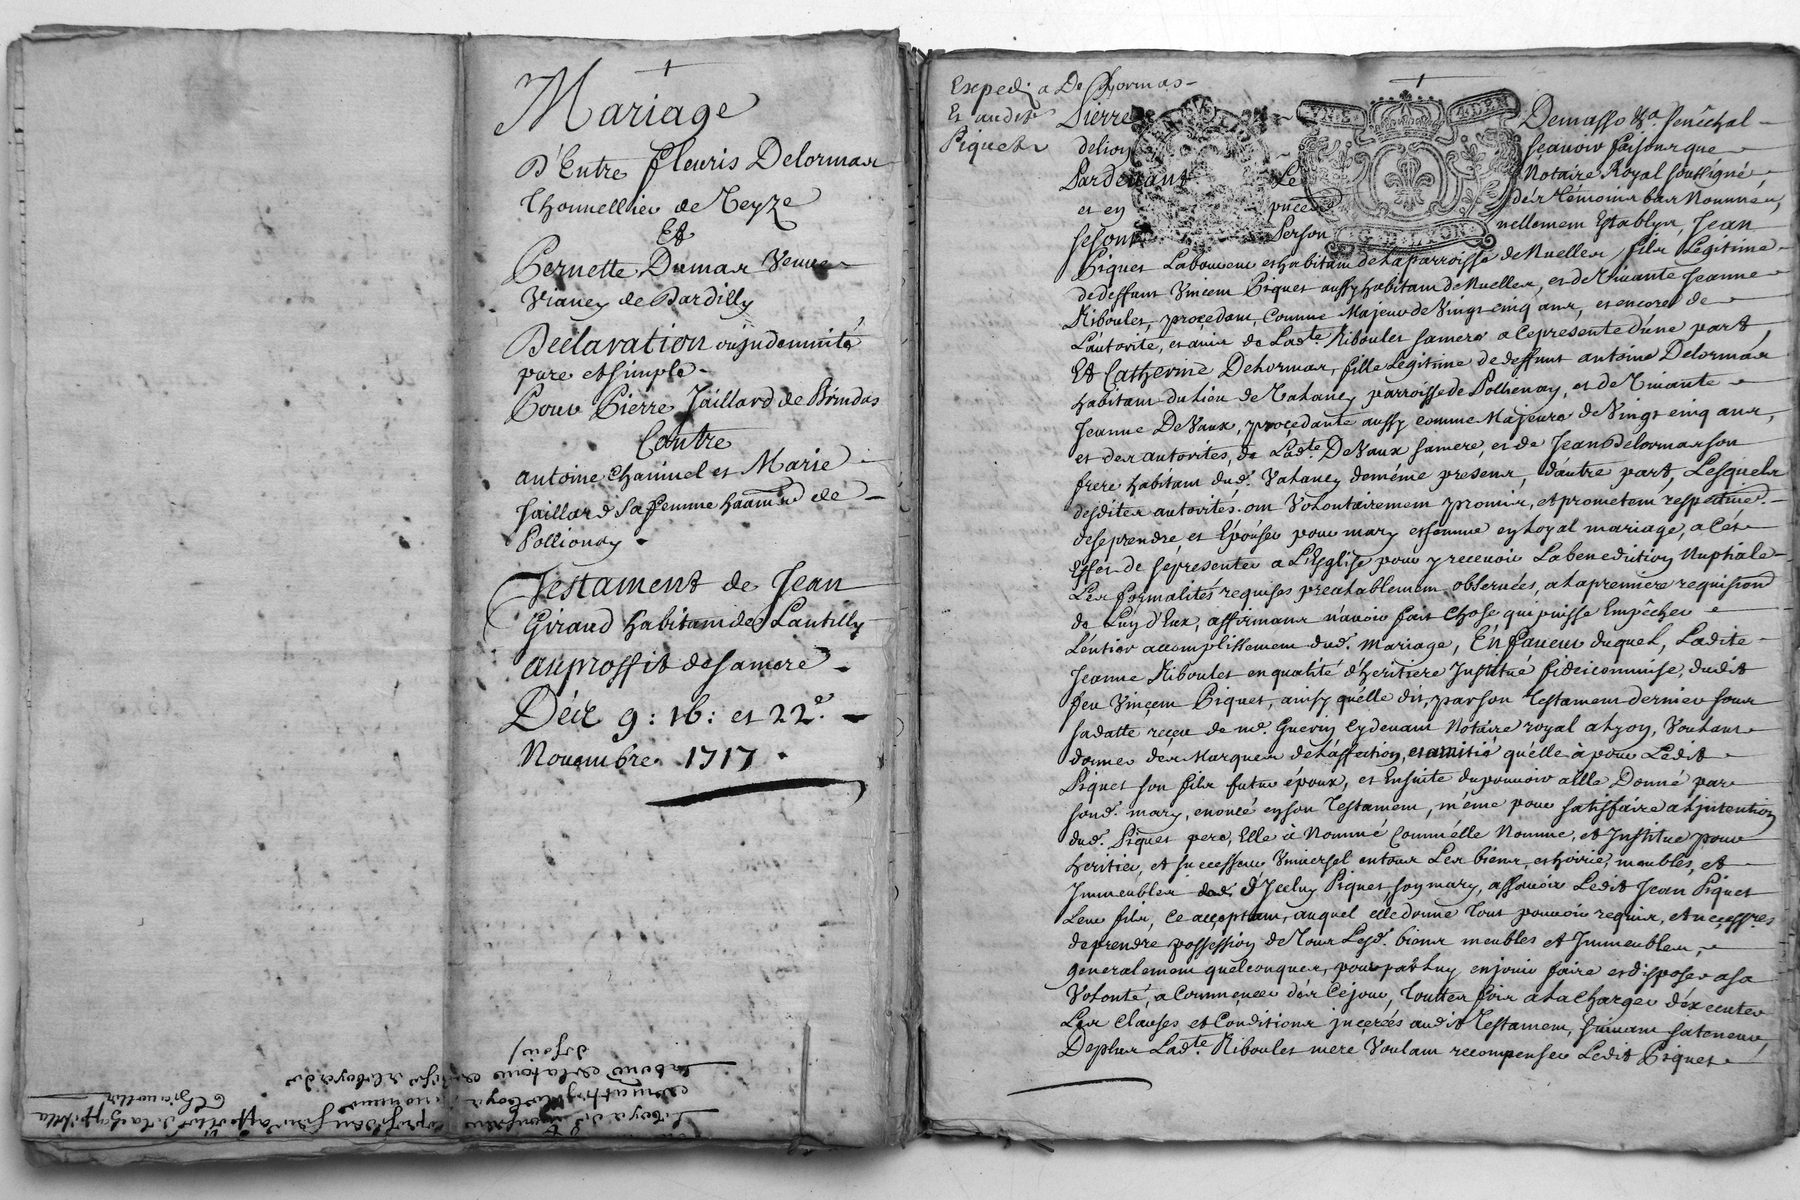 Mariage
D'Entre fleuris Delormas
Thonnellier de Teyze
Et
Pernette Dumas Veuve
Vianey de Dardilly
Declaration ou jndemnité
pure et simple
Pour Pierre Jaillard de Brindas
Contre
antoine Chanuel et Marie
jaillard sa femme de
Pollionay
Testament de Jean
Giraud habitant de Lantilly
au proffit de sa mere
Déct 9: 16: et 22e.
Novembre 1717
Expedi a De Lormas
Et audit
Piquet
Pierre Demasso Senêchal
delion scavoir faisons que
Pardevant Le Notaire Royal soussigné
et en pñce des témoins bas Nommés,
se sont Person nellement Establys, Jean
Piquet Laboureur et habitant de la parroisse de Nuelles, fils Legitime
de deffunt Vincent Piquet aussy habitant de Nuelles, et de Vivante Jeanne
Riboulet, proçedant, Comme Majeur de Vingt cinq ans, et encores de
L'autorité, et avis de Ladte. Riboulet sa mere a ce presente d'une part,
Et Catherine Delormas, fille Legitime de deffunt antoine Delormas
habitant du Lieu de Valaney parroisse de Pollienay, et de Vivante
Jeanne De Vaux, proçedante aussy comme Majeure de Vingt cinq ans,
et des autorités, de Ladte De Vaux sa mere, et de Jean Delormas son
frere habitant dud. Valaney de même present, d'autre part, Lesquels
desdites autorités ont Volontairement promis, et prometent respective.
de se prendre, et Epouser pour mary et femme en Loyal mariage, a Cét
Effet de se presenter a L'Eglise pour y recevoir La benediction Nuptiale
Les formalités requises prealablement observées, a la premiere requision
de Luy d'Eux, affirmans n'avoir fait chose qui puisse Empêcher
L'entier accomplissement dud. mariage, En faveur duquel, Ladite
Jeanne Riboulet en qualité d'heritiere Institué fideicommise, dudit
feu Vinçent Piquet, ainsy qu'elle dit, par son Testament dernier sous
sa datte reçeu de me. Guerin Cydevant Notaire royal a Lyon, Voulant
donner des Marques de L'affection, et amitié qu'elle à pour Ledit
Piquet son fils futur époux, et Ensuite du pouvoir a Elle Donné par
sond. mary, enoncé en son Testament, même pour satisfaire a L'jntention
dud. Piquet pere, Elle à Nommé Comme elle Nomme, et Institue pour
heritier, et successeur Universel en tous Les biens, et hoirie, meubles, et
Immeubles d'Iceluy Piquet, son mary, assavoir Ledit Jean Piquet
Leur fils, Ce acceptant, auquel elle donne tout pouvoir requis, et necessres
de prendre possession de tous Lesd. biens meubles et Immeubles,
generalement quelconques, pour par Luy en jouir faire et disposer a sa
Volonté, a Commencer dés Ce jour, toutes fois a la charge d'éxecuter
Les clauses et Conditions jnçerées audit Testament, suivant sa teneur,
De plus Ladte. Riboulet mere Voulant recompenser Ledit Piquet